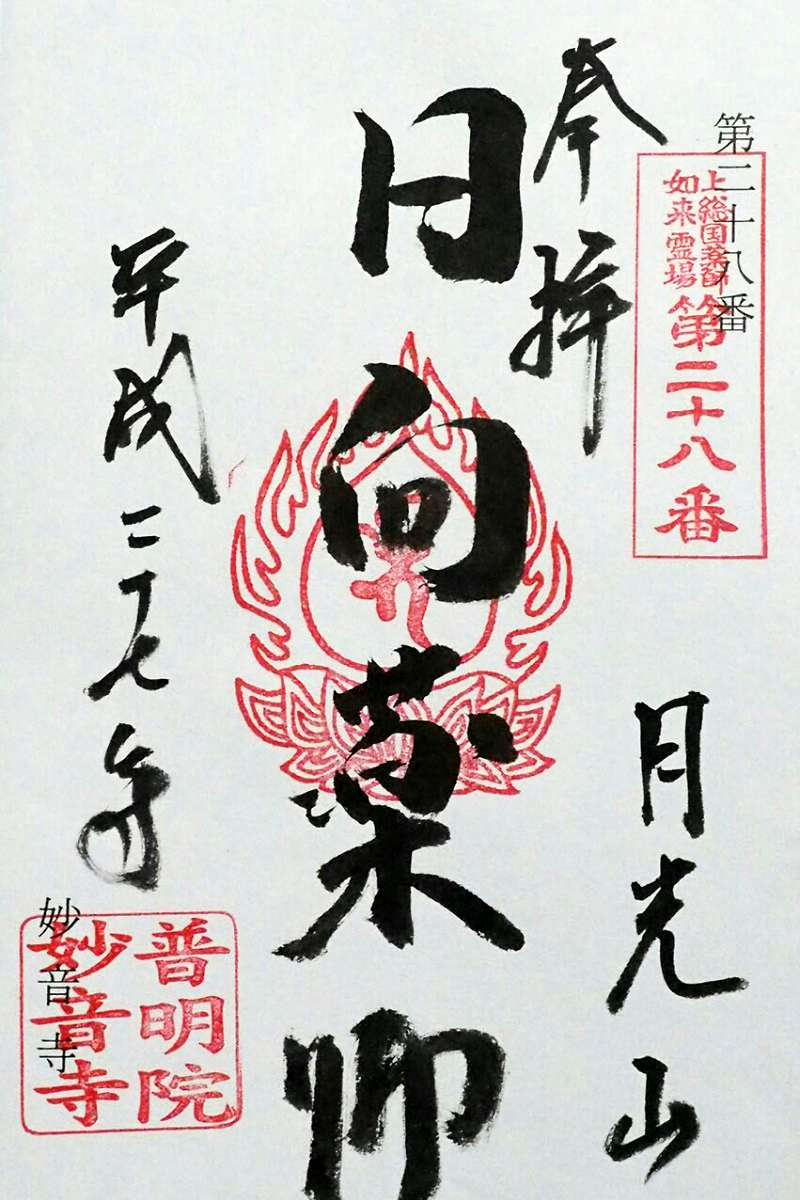 第二十八番
上総国薬師
如来霊場
第二十八番
奉拝
月光山
日向薬師
平成二十七年
普明院
妙音寺
妙音寺